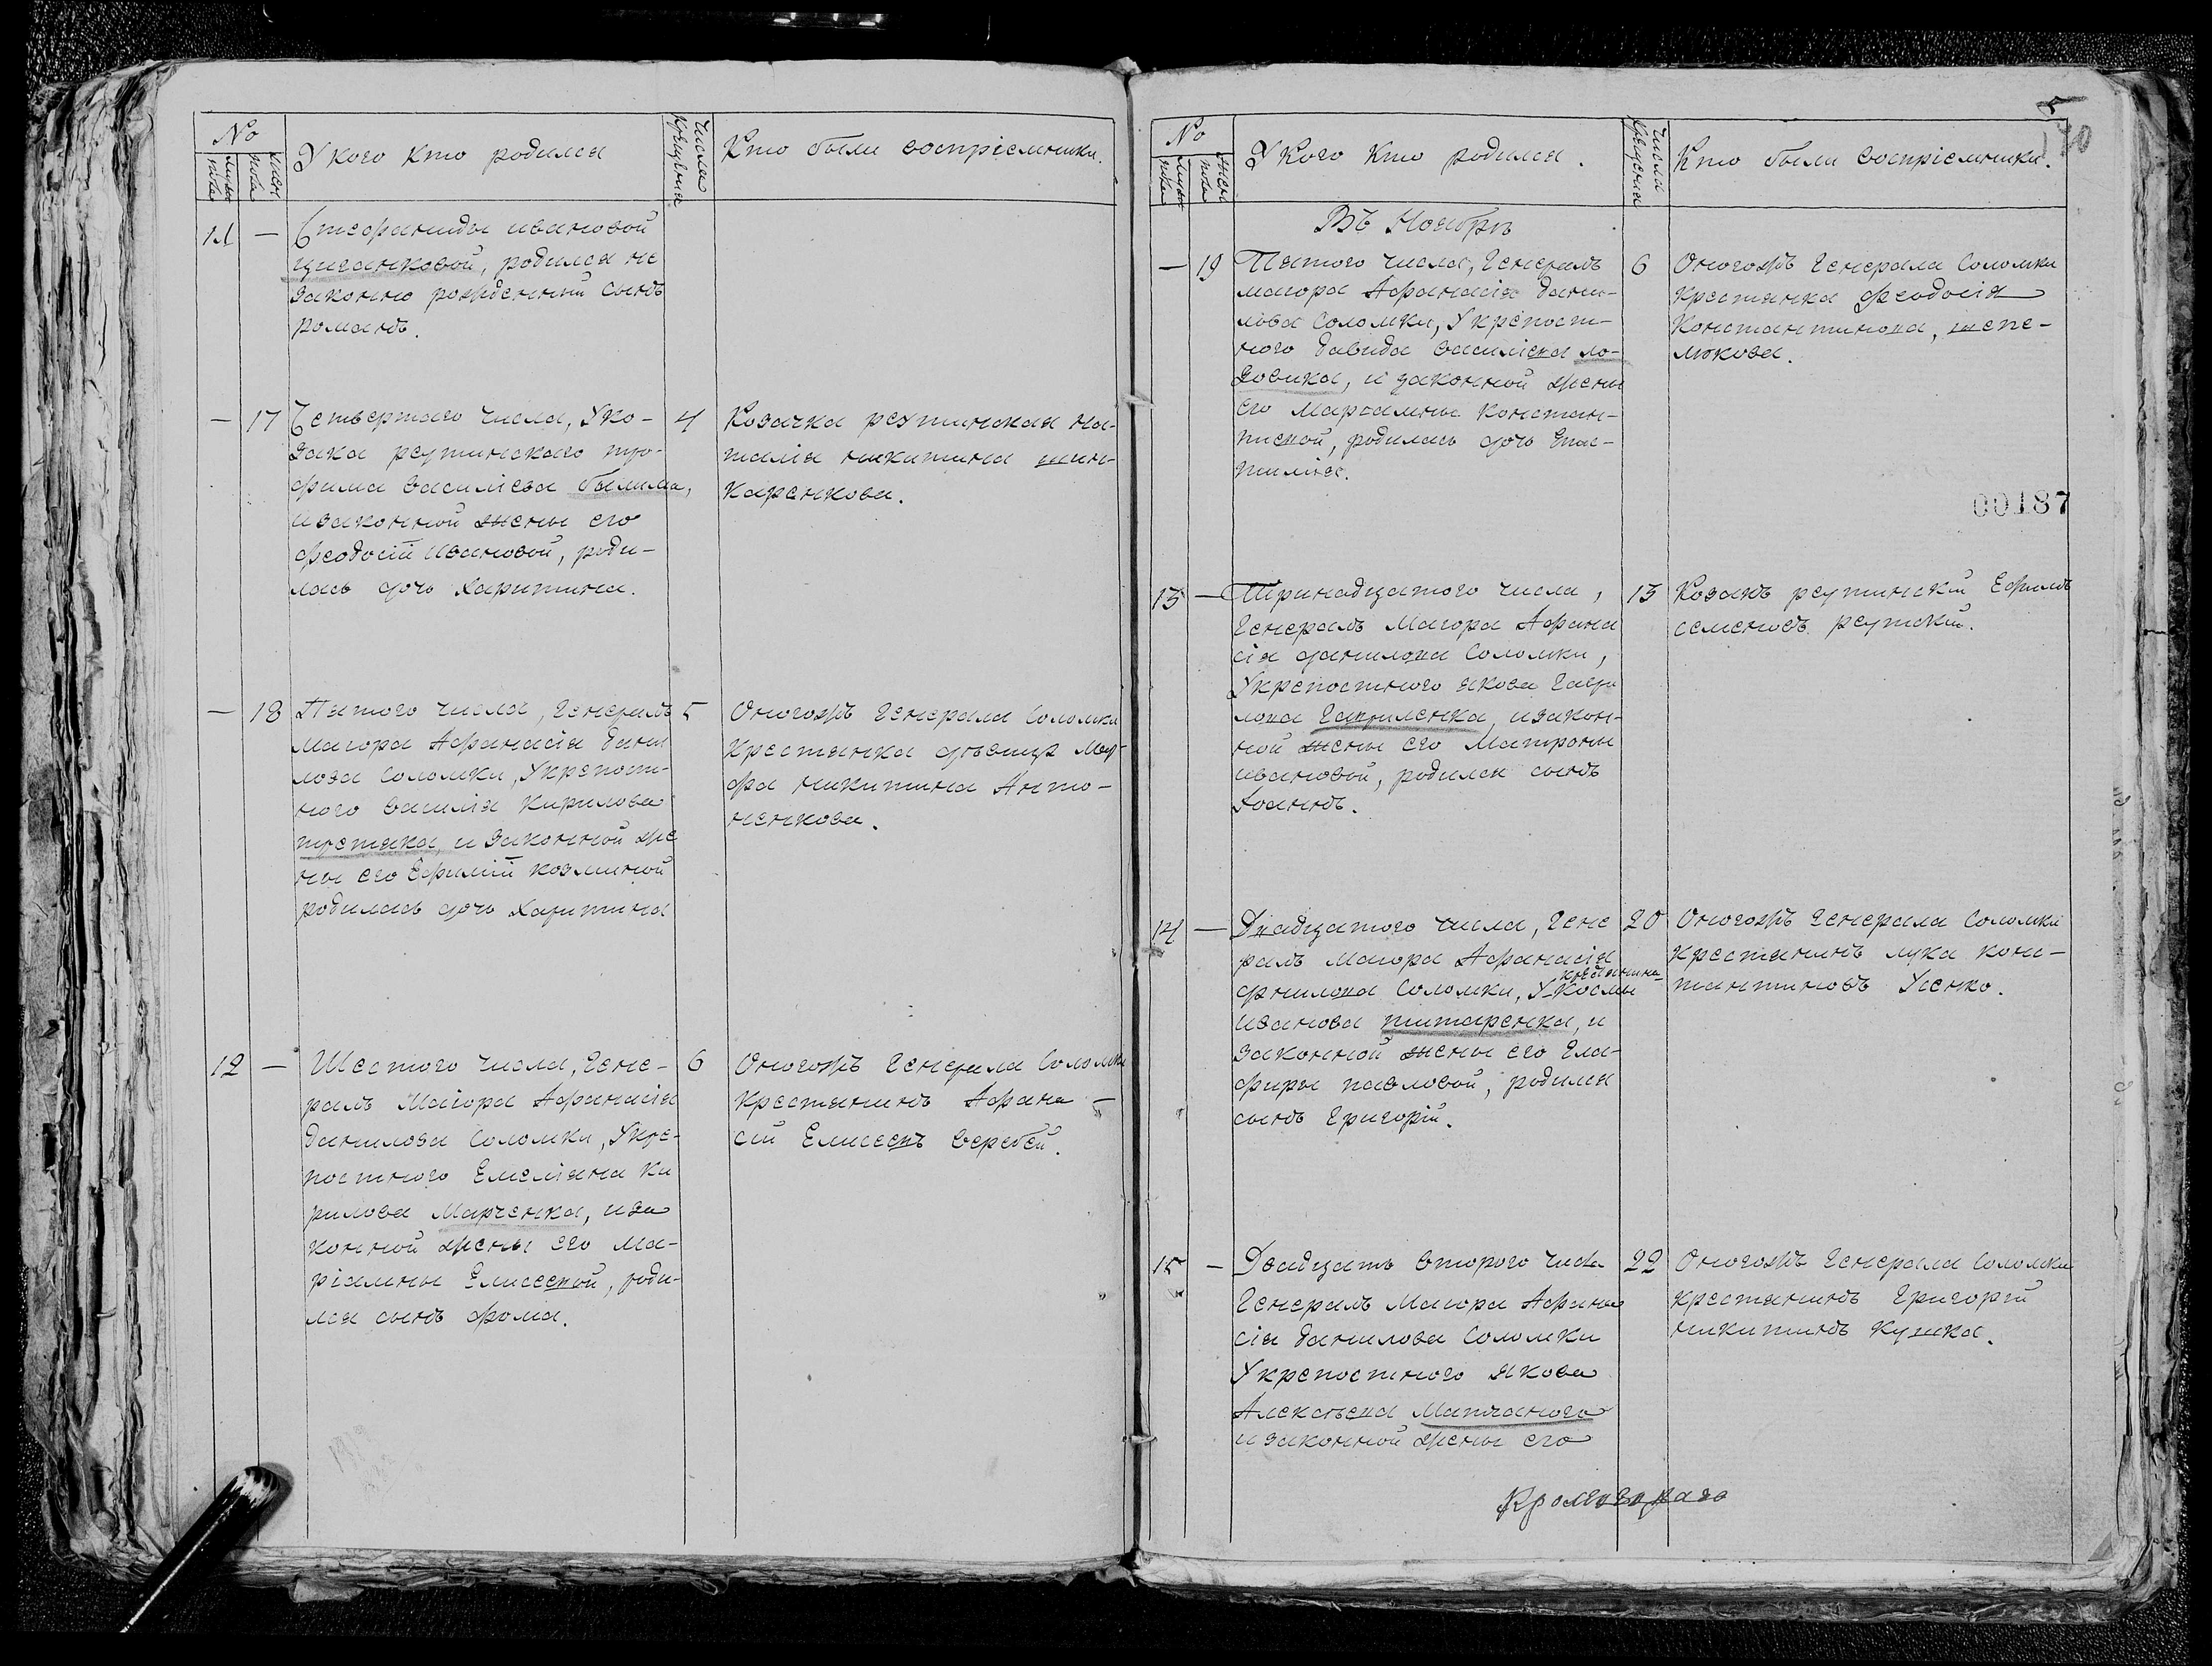 №
мужеска
женска
У кого кто родился
Числа крещенія
Кто были воспріемники.
11 —
Стефаниды ивановой
циганковой, родился не
законно рожденный сынъ
романъ.
— 17
Четвертаго числа, У ко-
зака реутинскаго тро-
фима василіева былима,
и законной жены его
феодосіи ивановой, роди-
лась дочь харитина.
4
Козачка реутинская на-
талія никитина шин-
каренкова.
— 18
Пятого числа, Генералъ
Маіора Афанасія дани
лова Соломки, У крепост-
ного василія Кирилова
третяка, и законной же
ны его Ефиміи козминой
родилась дочь харитина
5
Оногожъ Генерала Соломки
крестянка девица Мар-
фа никитина Анто-
ненкова.
12 —
Шестого числа, Гене-
ралъ Маіора Афанасія
данилова Соломки, У кре-
постного Емеліяна Ки
рилова Марченка, и за
конной жены его Ма-
ріамны Елисеевой, роди-
лся сынъ фома.
6
Оногожъ Генерала Соломки
крестянинъ Афана-
сій Елисеевъ веребей.
70
№
мужеска
женска
У кого кто родился.
Числа крещенія
Кто были воспріемники.
Въ Ноябрѣ
— 19
Пятого числа, Генералъ
маіора Афанасія дани-
лова Соломки, У крепост-
ного давида василіева ло-
зовика, и законной жены
его Маріамны Констан-
тиновой, родилась дочь
6
Оногожъ Генерала Соломки
крестянка феодосія
Константинова, шепе-
люкова.
00187
13 —
Тринадцатого числа,
Генералъ Маіора Афана
сія данилова Соломки,
У крепостного якова гаври
лова Гавриленка, и закон-
ной жены его Матроны
ивановой, родился сынъ
Іоаннъ.
13
Козакъ реутинскій Ефимъ
семеновъ реутскій.
14 —
Двадцатого числа, Гене
ралъ маіора Афанасія
днилова Соломки, У крестянина Космы
иванова титаренка, и
законной жены его Гла-
фиры павловой, родился
сынъ Григорій.
20
Оногожъ Генерала Соломки
крестянинъ лука конс-
тантиновъ Усенко.
15 —
Двадцать второго числа
Генералъ Маіора Афана
сія данилова Соломки
У крепостного якова
Алексѣева Матчаного
и законной жены его
22
Оногожъ Генерала Соломки
крестянинъ Григорій
никитинъ кушка.